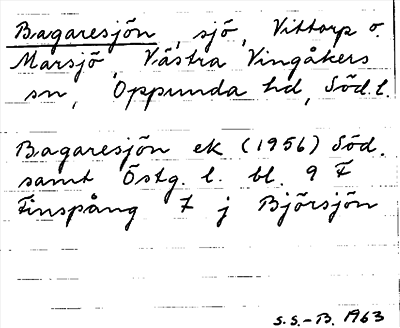 Bagaresjön, sjö, Vittorp o.
Marsjö, Västra Vingåkers
sn, Oppunda hd, Söd.l.
Bagaresjön ek (1956) Söd.
samt Östg. l. bl. 9 F
Finspång 7 j Björsjön
S.S.-B. 1963